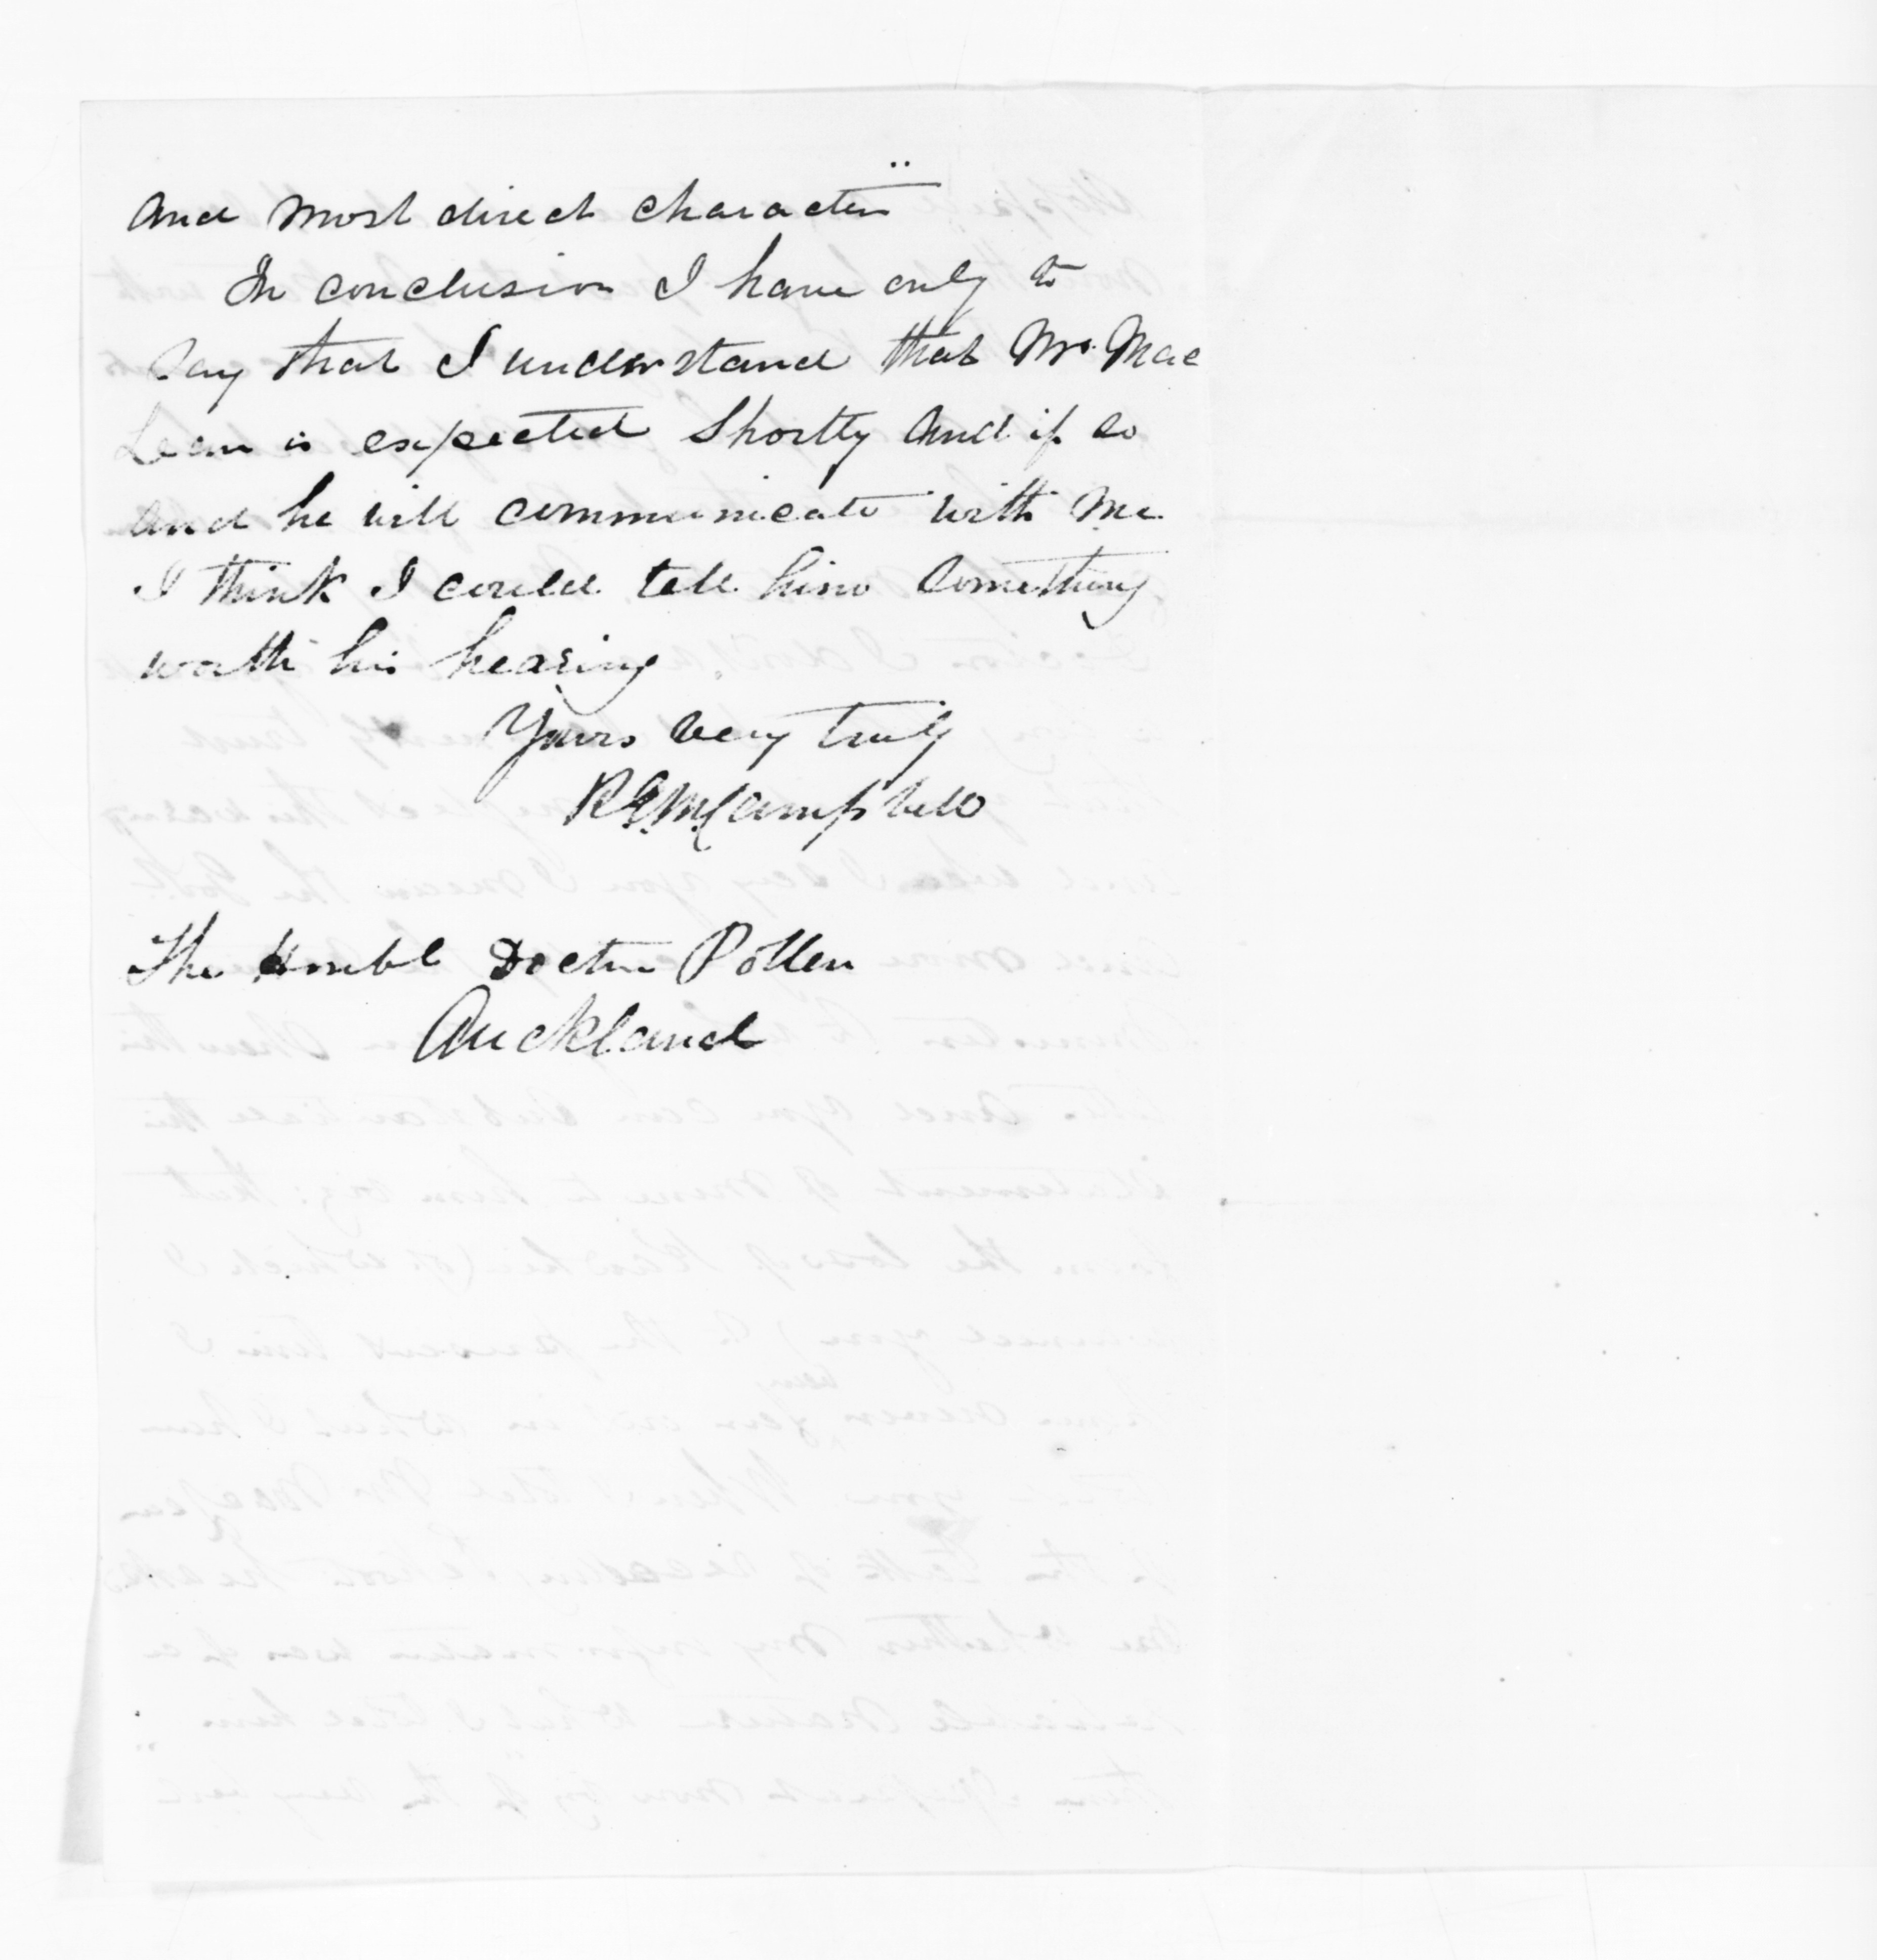 and most direct character"
In conclusion I have only to
say that I understand that Mr. Mac
Lean is expected shortly and if so
and he will communicate with me
I think I could tell him something
worth his hearing
Yours very truly
Campbell
The Honbl Doctor Pollen
Auckland